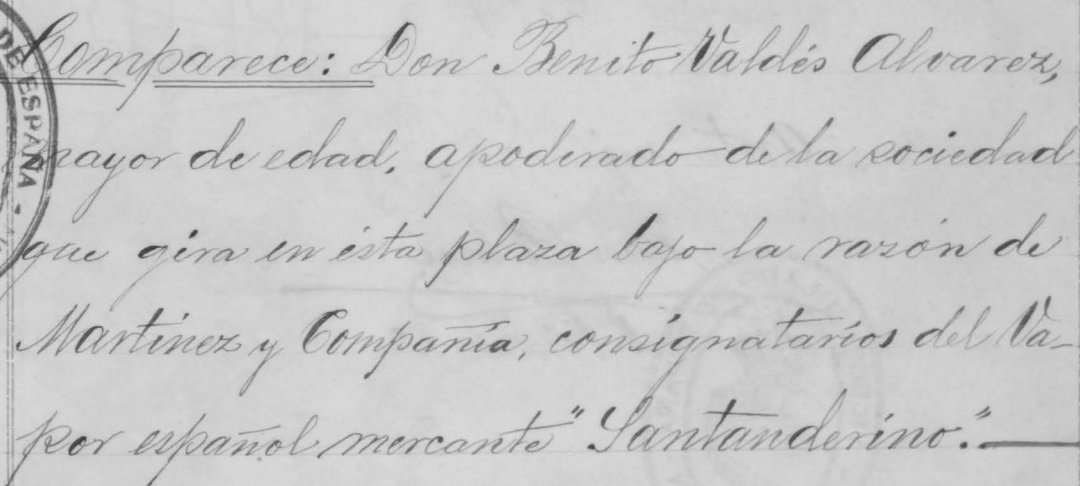 DE ESPAÑA
Comparece: Don Benito Valdés Alvarez,
mayor de edad, apoderado de la sociedad
que gira en ésta plaza bajo la razón de
Martinez y Compañía, consignatarios del Va-
por español mercante "Santanderino".